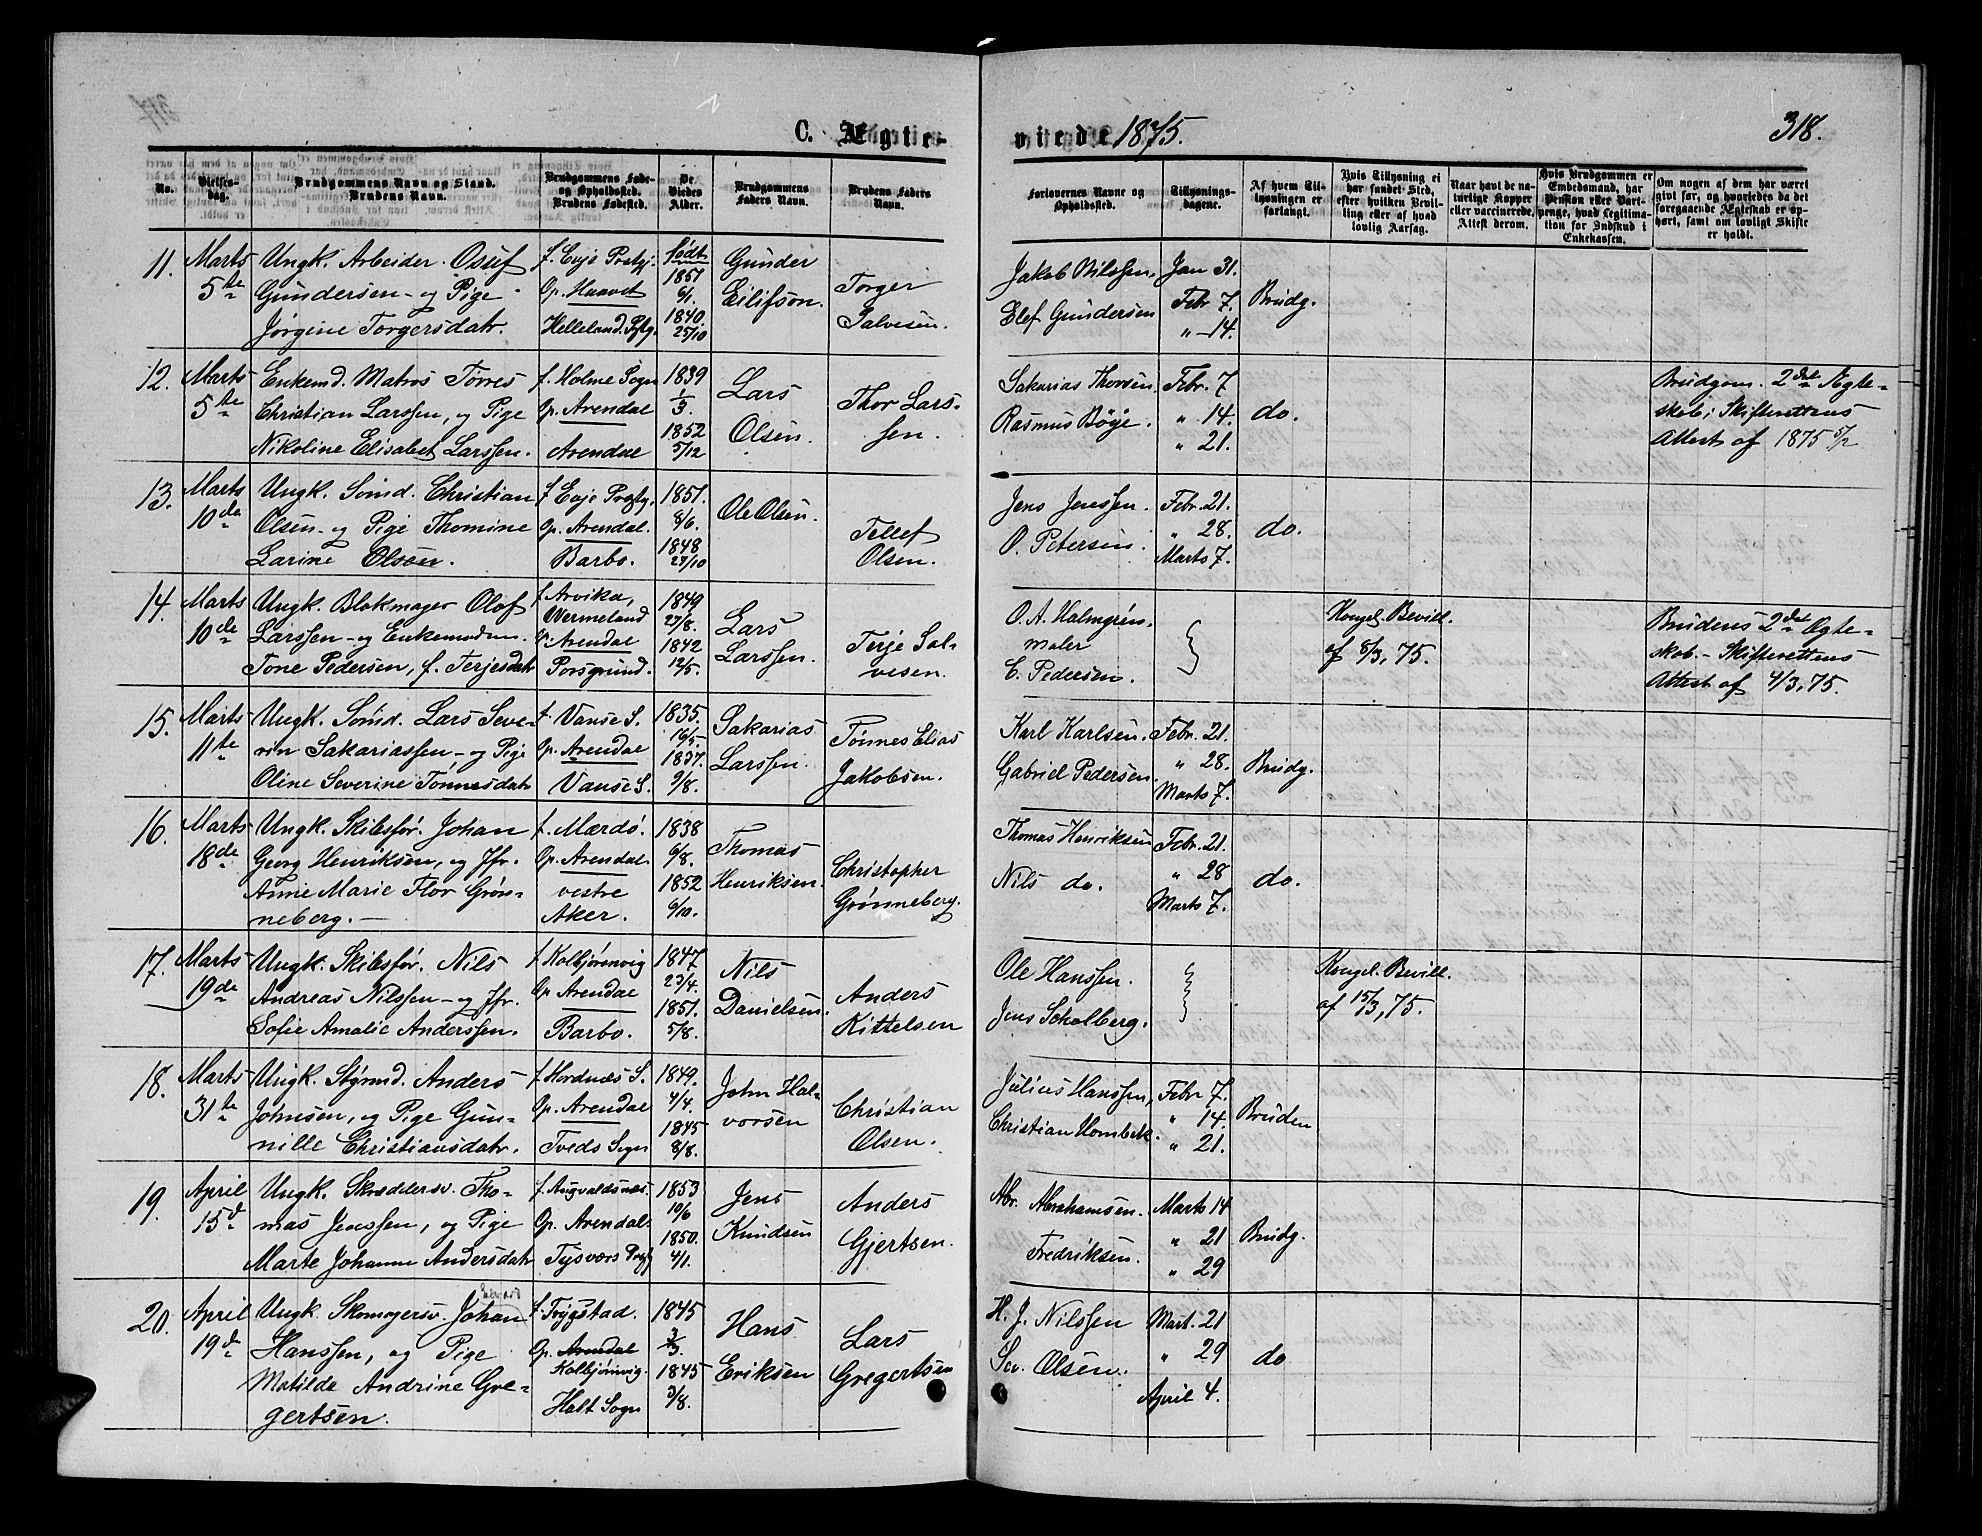 C. Ægte-
viede 1875.
318.
No.
Vielses-
dag.
Brudgommens Navn og Stand.
Brudens Navn.
Brudgommens Føde-
og Opholdssted.
Brudens Fødested.
De
Viedes
Alder.
Brudgommens
Faders Navn.
Brudens Faders
Navn.
Forlovernes Navne og
Opholdssted.
Tillysnings-
dagene.
Af hvem Til-
lysningen er
forlangt.
Hvis Tillysning ei
har fundet Sted,
efter hvilken Bevil-
ling eller af hvad
lovlig Aarsag.
Naar havt de na-
turlige Kopper
eller vaccinerede.
Attest derom.
Hvis Brudgommen er
Embedsmand, har
Pension eller Vart-
penge, hvad Legitima-
tion for Indskud i
Enkekassen.
Om nogen af dem har været
givt før, og hvorledes da det
foregaaende Ægteskab er op-
hørt, samt om lovligt Skifte
er holdt.
11.
Marts
5te
Ungk. Arbeider Osuf
Gundersen - og Pige
Jørgine Torgersdatr.
f. Evje Prstgj.
Op. Haavet
Helleland Pgtg.
Født
1851
6/1.
1840
25/10
Gunder
Eilifson.
Torger
Salvesen.
Jakob Nilssen.
Elef Gundersen
Jan 31.
Febr 7.
" -14.
Brudg.
12.
Marts
5te
Enkemd. Matros Tørres
Christian Larssen, og Pige
Nikoline Elisabet Larssen.
f. Holme Sogn
Op. Arendal
Arendal
1839
1/3.
1852
5/12
Lars
Olsen.
Thor Lars-
sen.
Sakarias Thorsen
Rasmus Bøye.
Febr. 7
" 14.
" 21.
do.
Brudgom. 2det Ægte-
skab; Skifterettens
Attest af 1875 5/2
13.
Marts
10de
Ungk. Sømd. Christian
Olsen - og Pige Thomine
Larine Olsen.
f Evje Prgtg.
Op. Arendal.
Barbo.
1851.
8/6.
1848
27/10
Ole Olsen.
Tellef
Olsen.
Jens Jenssen.
O. Petersen.
Febr. 21.
" 28.
Marts 7.
do.
14.
Marts
10de
Ungk. Blokmager Olof
Larssen - og Enkemadm.
Tone Pedersen, f. Terjesdatr
f. Arvika,
Wermeland
Op. Arendal
Porsgrund.
1849
27/8.
1842
12/5.
Lars
Larssen.
Terje Sal-
vesen.
O. A. Halmgren.
maler
C. Pedersen.
Kongel. Bevill.
af 8/3, 75.
Brudens 2det Ægte-
skab. - Skifterettens
Attest af 4/3, 75.
15.
Marts
11te
Ungk. Sømd. Lars Seve-
rin Sakariassen - og Pige
Oline Severine Tönnesdatr
f. Vanse S.
Op. Arendal
Vanse S.
1835.
16/5.
1837.
9/8.
Sakarias
Larssen.
Tønnes Elias
Jakobsen.
Karl Karlsen.
Gabriel Pedersen.
Febr. 21.
" 28.
Marts 7.
Brudg.
16.
Marts
18de
Ungk. Skibsfør. Johan
Georg Henriksen, og Jfr.
Anne Marie Flor Grøn-
neberg. -
f. Mærdø.
Op. Arendal.
vestre
Aker.
1838
6/8.
1852
6/10.
Thomas
Henriksen.
Christopher
Grønneberg.
Thomas Henriksen
Nils do.
Febr. 21.
" 28
Marts 7.
do.
17.
Marts
19de
Ungk. Skibsfør. Nils
Andreas Nilssen - og Jfr.
Sofie Amalie Anderssen.
f Kolbjørnsvig
Op Arendal
Barbo.
1847
23/4.
1851.
5/8.
Nils
Danielsen.
Anders
Kittelsen
Ole Hanssen.
Jens Scholberg.
Kongel. Bevill.
af 15/3, 75.
18.
Marts
31te
Ungk. Styrmd. Anders
Johnsen, og Pige Gun-
nille Christiansdatr.
f Hordnæs S.
Op. Arendal
Tveds Sogn
1849.
4/4.
1845
8/8.
John Hal-
vorsen
Christian
Olsen.
Julius Hanssen,
Christian Hombek.
Febr 7.
" 14.
" 21.
Bruden
19.
April
15d
Ungk. Skræddersv. Tho-
mas Jenssen, og Pige
Marte Johanne Andersdatr
f. Augvaldsnæs.
Op. Arendal.
Tysværs Prgtg
1853
10/6
1850.
4/1.
Jens
Knudsen
Anders
Gjertsen.
Abr. Abrahamsen.
Fredriksen.
Marts 14
" 21
" 29
Brudg.
20.
April
19d
Ungk. Skomagersv. Johan
Hanssen, og Pige
Matilde Andrine Gre-
gertsen.
f. Trygstad.
Op. Arendal
Kolbjørnsvig.
Holt Sogn
1845
1845
3/8.
Hans
Eriksen
Lars
Gregertsen
H. J. Nilssen
Sev. Olsen.
Mart. 21
" 29
April 4.
do